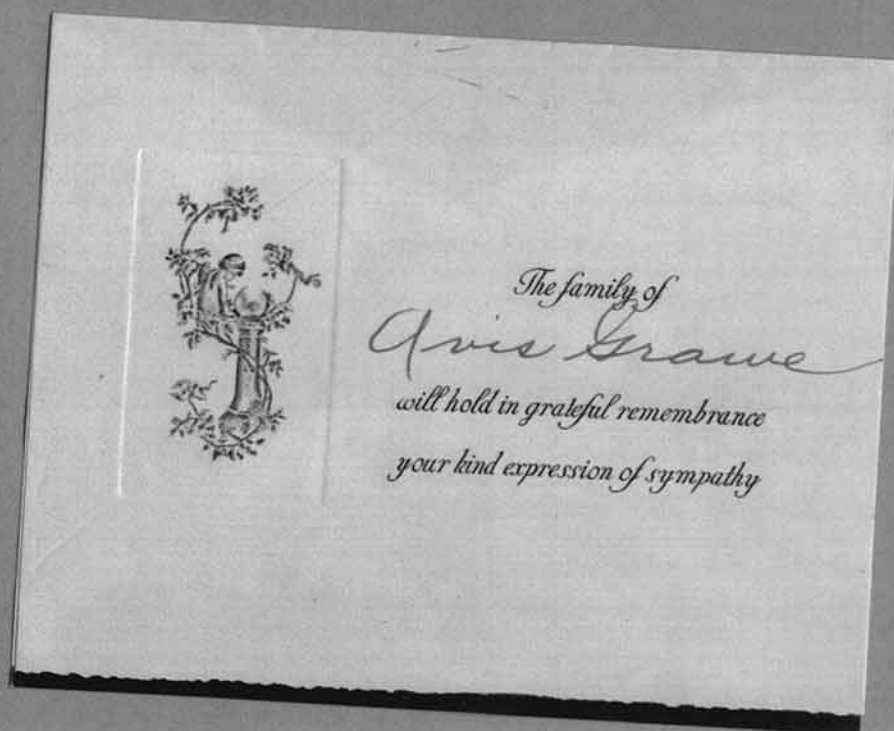 The family of
Avis Grawe
will hold in grateful remembrance
your kind expression of sympathy